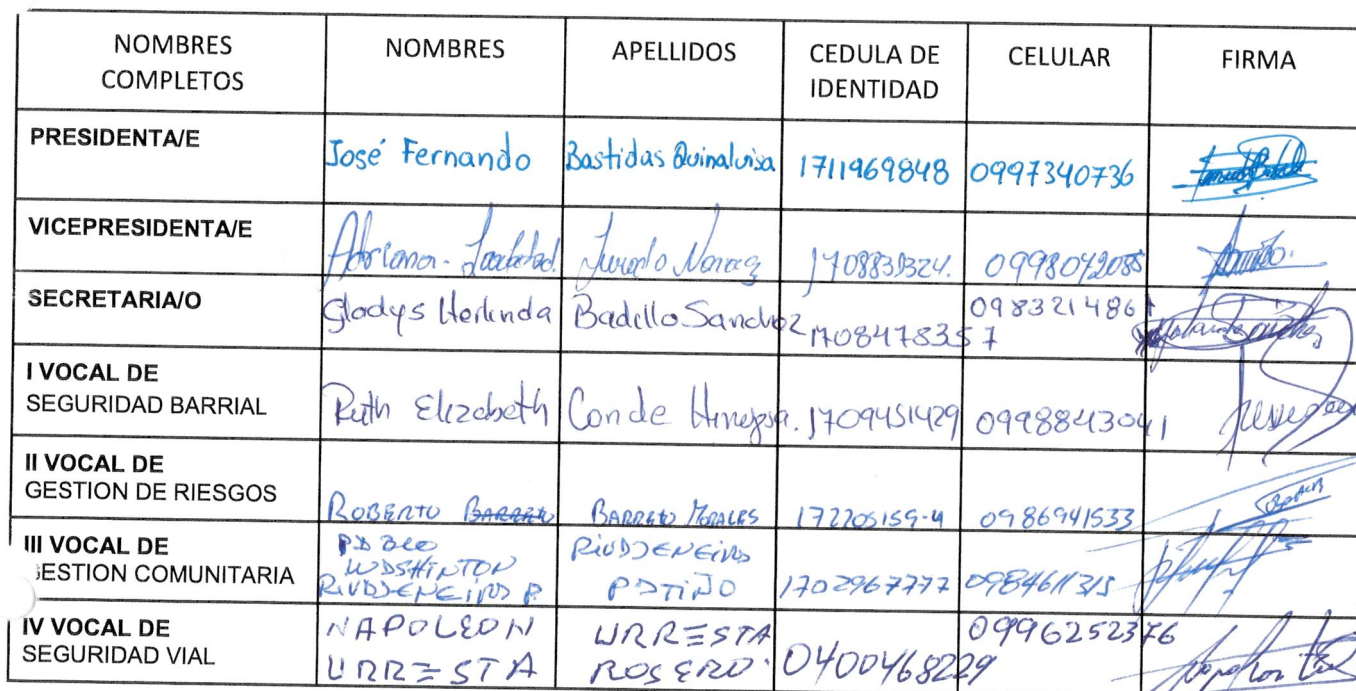 NOMBRES COMPLETOS NOMBRES APELLIDOS CEDULA DE IDENTIDAD CELULAR FIRMA
PRESIDENTA/E José Fernando Bastidas Quinaluisa 1711969848 0997340736
VICEPRESIDENTA/E Adriana Jurado
SECRETARIA/O Gladys Herlinda Badillo Sanchez 1708478357 098321486
I VOCAL DE
SEGURIDAD BARRIAL Ruth Elizabeth Conde Hinojosa. 1709451429 0998843041
II VOCAL DE
GESTION DE RIESGOS ROBERTO BARRETO BARRETO MORALES 172205159-4 0986941533
III VOCAL DE
GESTION COMUNITARIA PABLO WASHINTON RIVADENEIRA P. RIVADENEIRA PATIÑO 1702967777 0984611315
IV VOCAL DE
SEGURIDAD VIAL NAPOLEON URRESTA URRESTA ROSERO 0400468229 0996252376